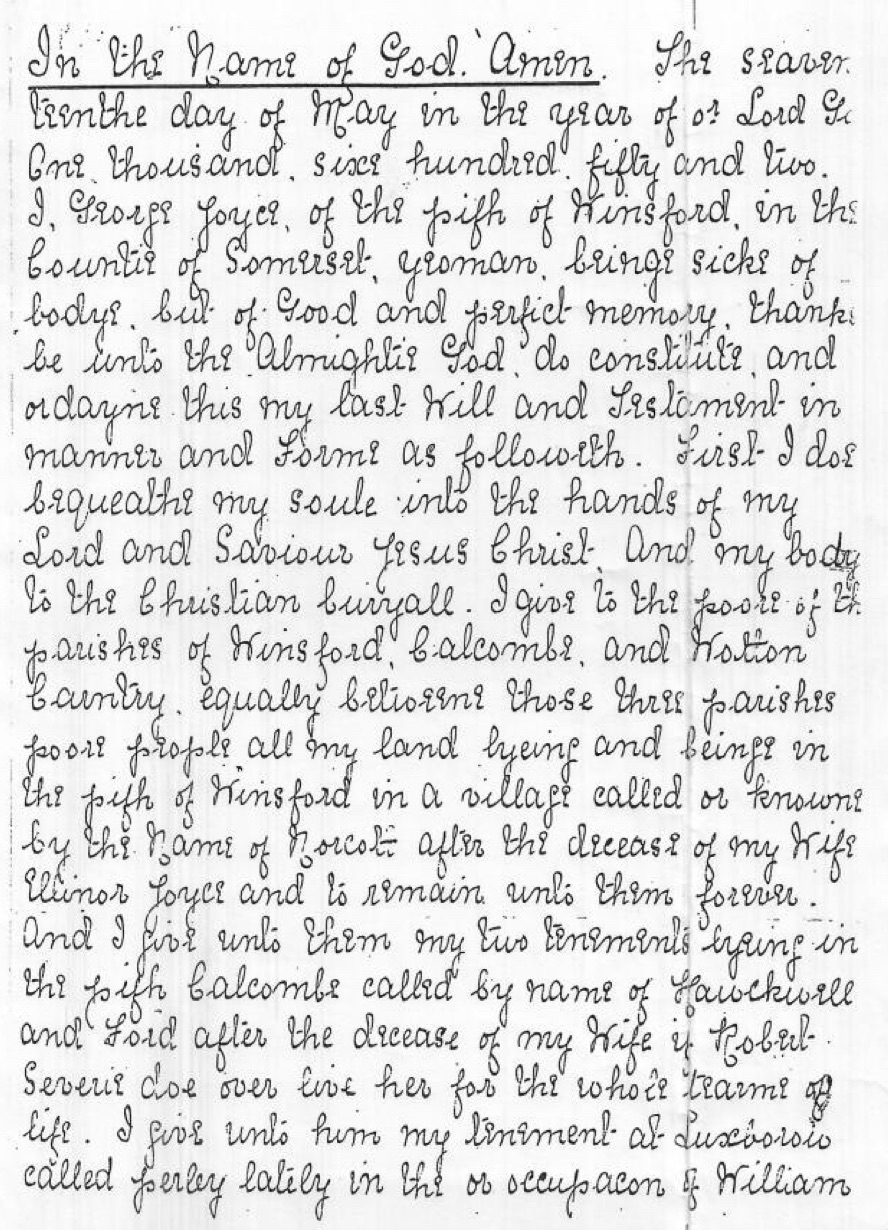 In the Name of God. Amen. The seaven
teenthe day of May in the year of or Lord
One thousand, sixe hundred, fifty and two.
I, George Joyce, of the pish of Winsford, in the
Countie of Somerset, yeoman, beinge sicke of
bodye, but of Good and perfect memory, thanks
be unto the Almightie God, do constitute, and
ordayne this my last Will and Testament in
manner and Forme as followeth. First I doe
bequeathe my soule into the hands of my
Lord and Saviour Jesus Christ, And my body
to the Christian buryall. I give to the poore of th
parishes of Winsford, Calcombe, and Wotton
Cauntry, equally betweene those three parishes
poore people all my land lyeing and beinge in
the pish of Winsford in a village called or knowne
by the Name of Norcott after the decease of my Wife
Ellinor Joyce and to remain unto them forever.
And I give unto them my two tenements lyeing in
the pish Calcombe called by name of Hawckwell
and Ford after the decease of my Wife if Robert
Severie doe over live her for the whole tearme of
life. I give unto him my tenement at Luxborow
called perley lately in the or occupacon of William